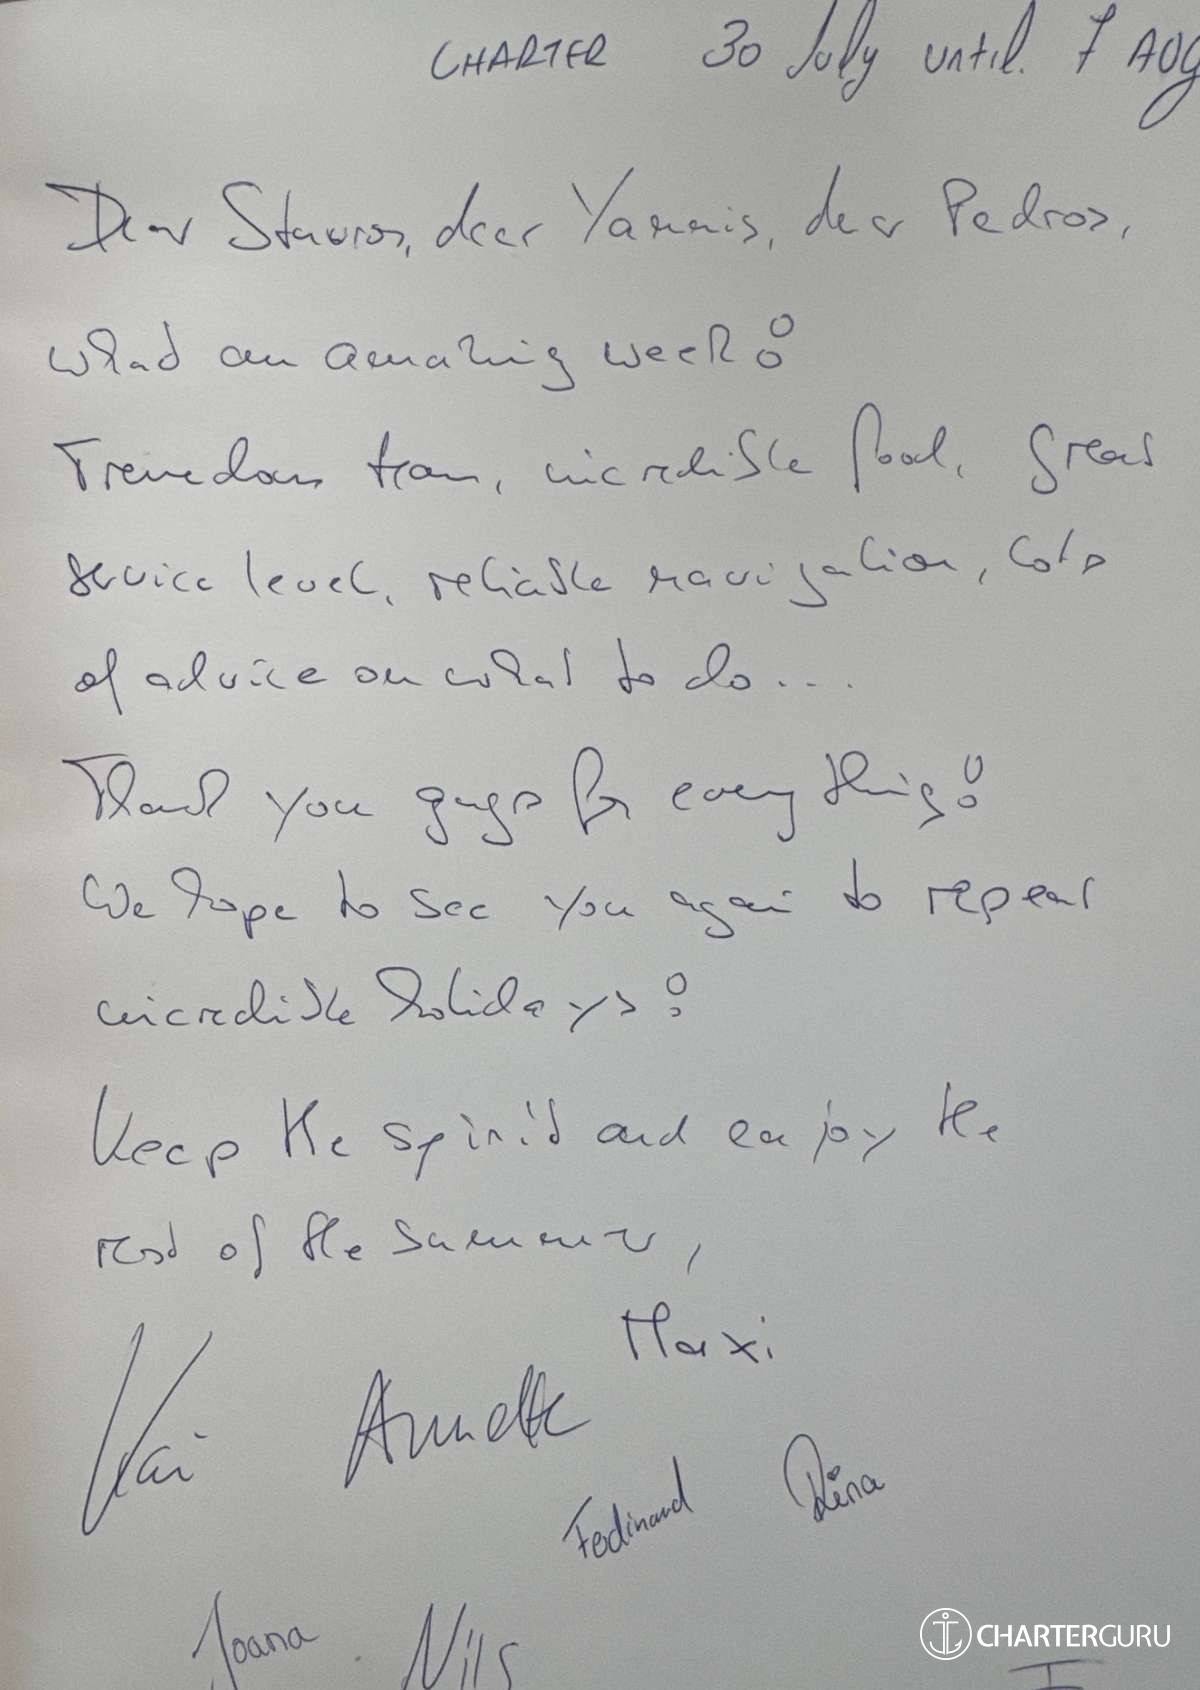 CHARTER 30 July until 7 AUG
Dear Stavros, dear Yannis, dear Pedros,
what an amazing week!
Tremedous team, incredible food, great
service level, reliable navigation, lots
of advice on what to do...
Thank you guys for everything!
We hope to see you again to repeat
incredible holidays!
Keep the spirit and enjoy the
rest of the summer,
Maxi
Kai Annette
Ferdinand Rina
Joana Nils
CHARTERGURU